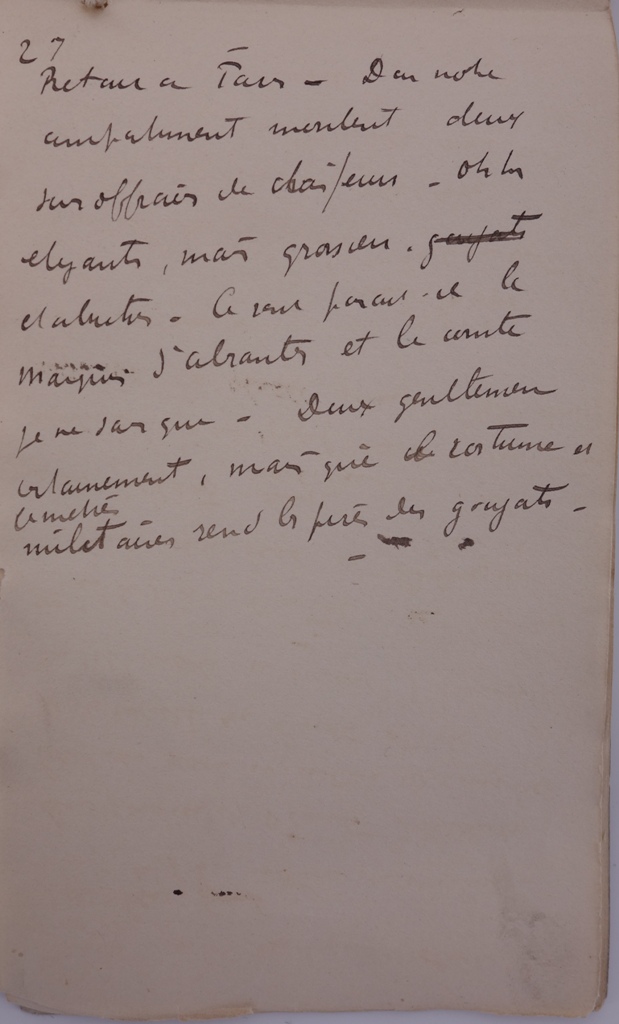 27
Retour à Paris – Dans notre
compartiment montent deux
sous officiers de chasseurs –
élégants, mais grossiers. goujats
et abrutis – Ce sont parait-il le
marquis d'abrantes et le comte
je ne sais qui – Deux gentlemen
certainement, mais que le costume et
militaires rend les pires des goujats –